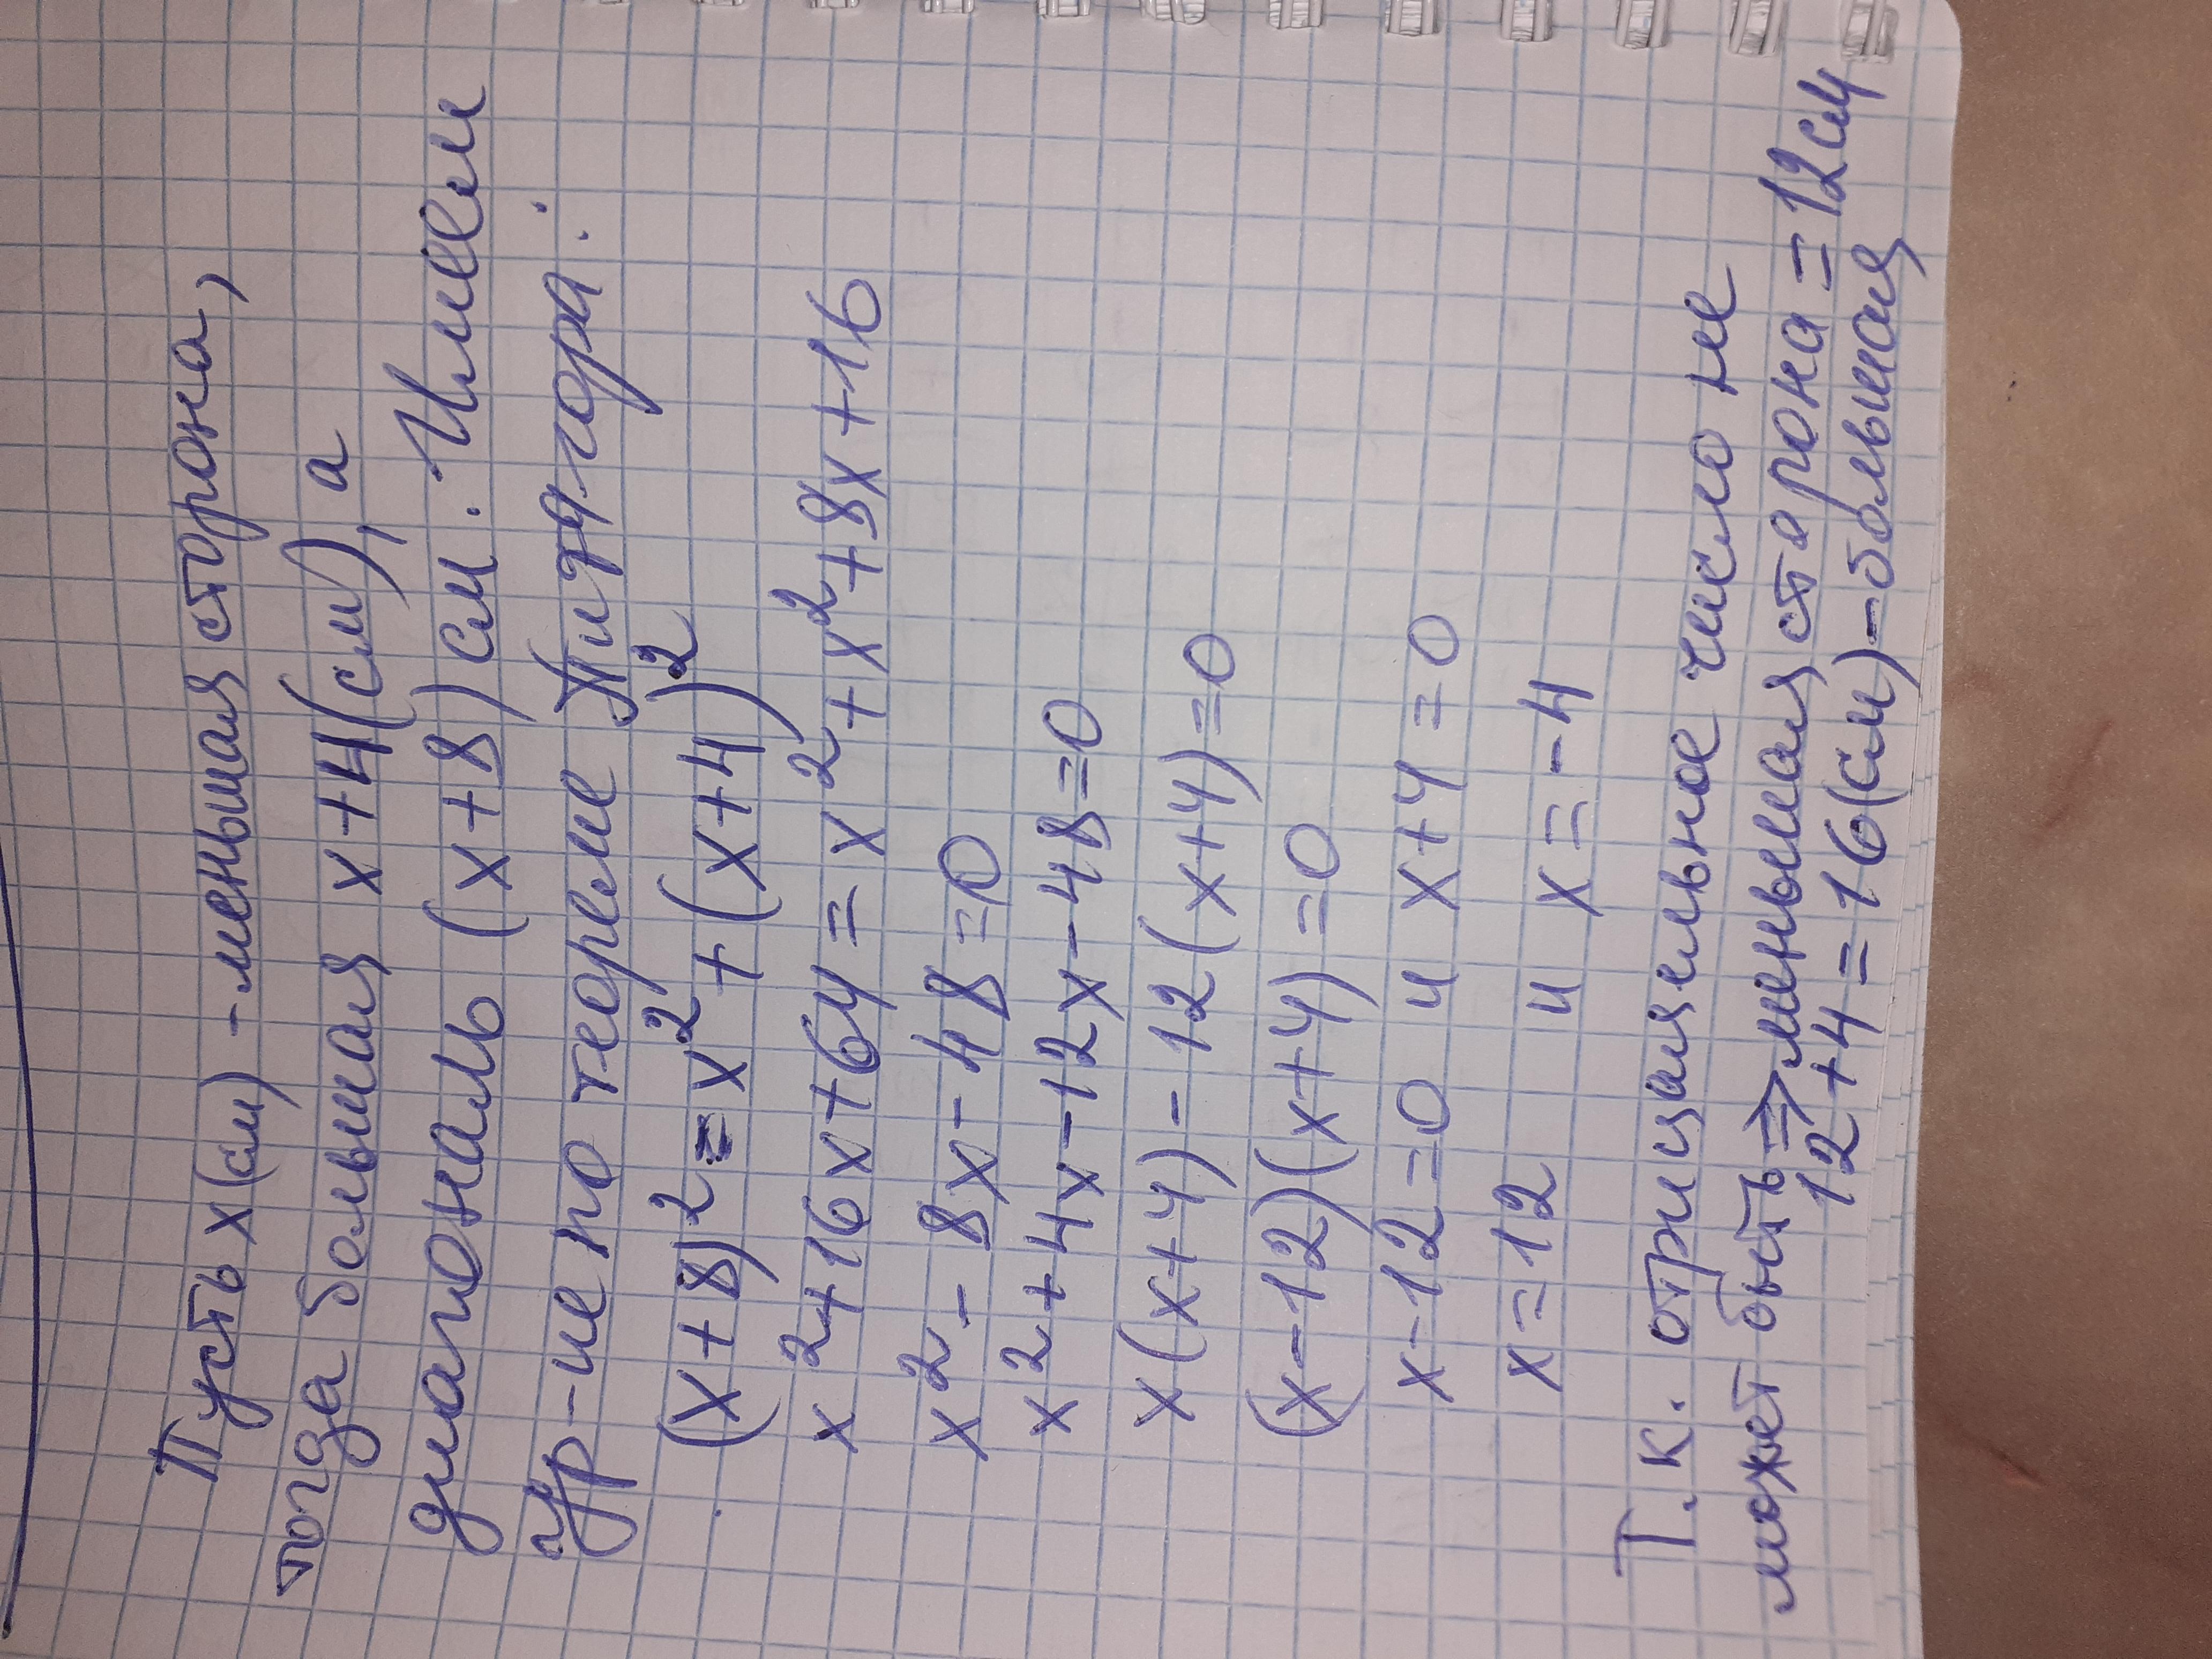 Пусть x(см) - меньшая сторона,
тогда большая x+4(см), а
диагональ (x+8)см. Имеем
ур-ие по теореме Пифагора:
(x+8)²=x²+(x+4)²
x²+16x+64=x²+x²+8x+16
x²-8x-48=0
x²+4x-12x-48=0
x(x+4)-12(x+4)=0
(x-12)(x+4)=0
x-12=0 и x+4=0
x=12 и x=-4
Т.к. отрицательное число не
может быть⇒меньшая сторона=12см
12+4=16(см)-большая